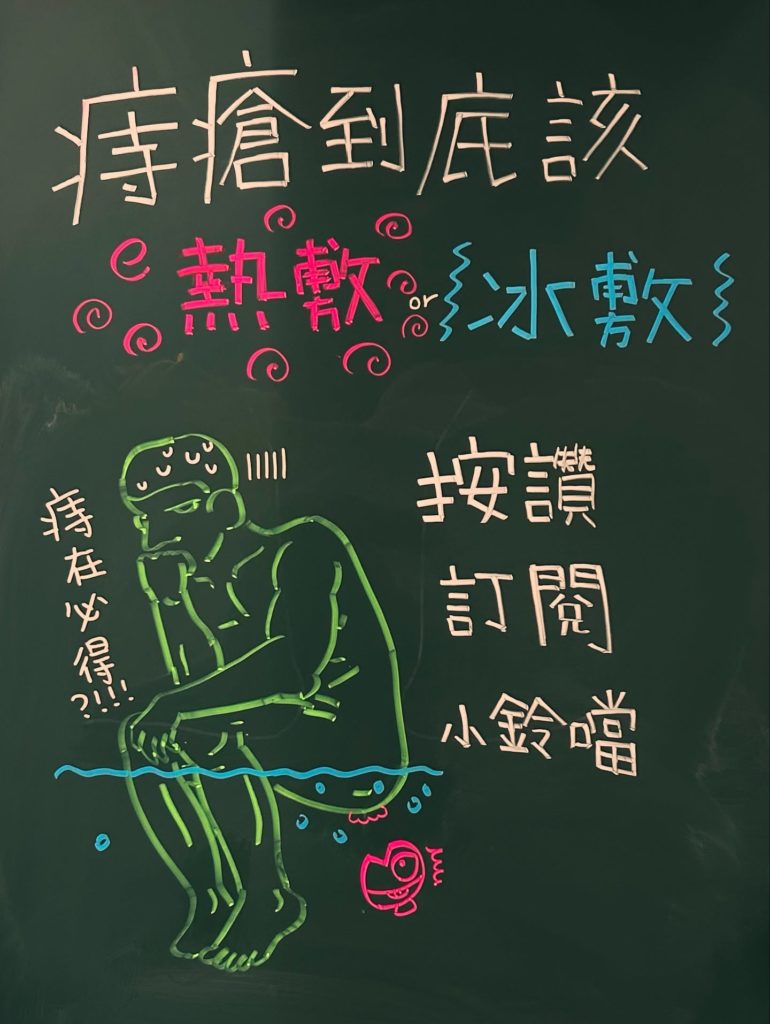 痔瘡到底該
熱敷 or 冰敷
痔在必得?!!!
按讚
訂閱
小鈴噹